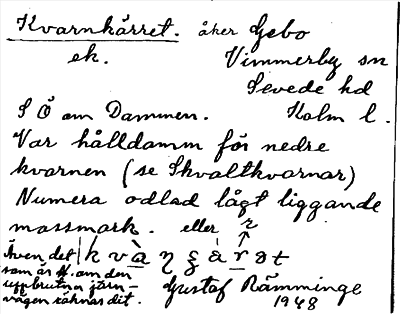 Kvarnkärret. åker Gebo
ek. Vimmerby sn
Sevede hd
S Ö om Dammen. Kalm l.
Var hålldamm för nedre
kvarnen (se Skvaltkvarnar)
Numera odlad lågt liggande
mossmark. eller r
Även det
som är N. om den
uppbrutna järn-
vägen räknas dit. Gustaf Rämminge
1948